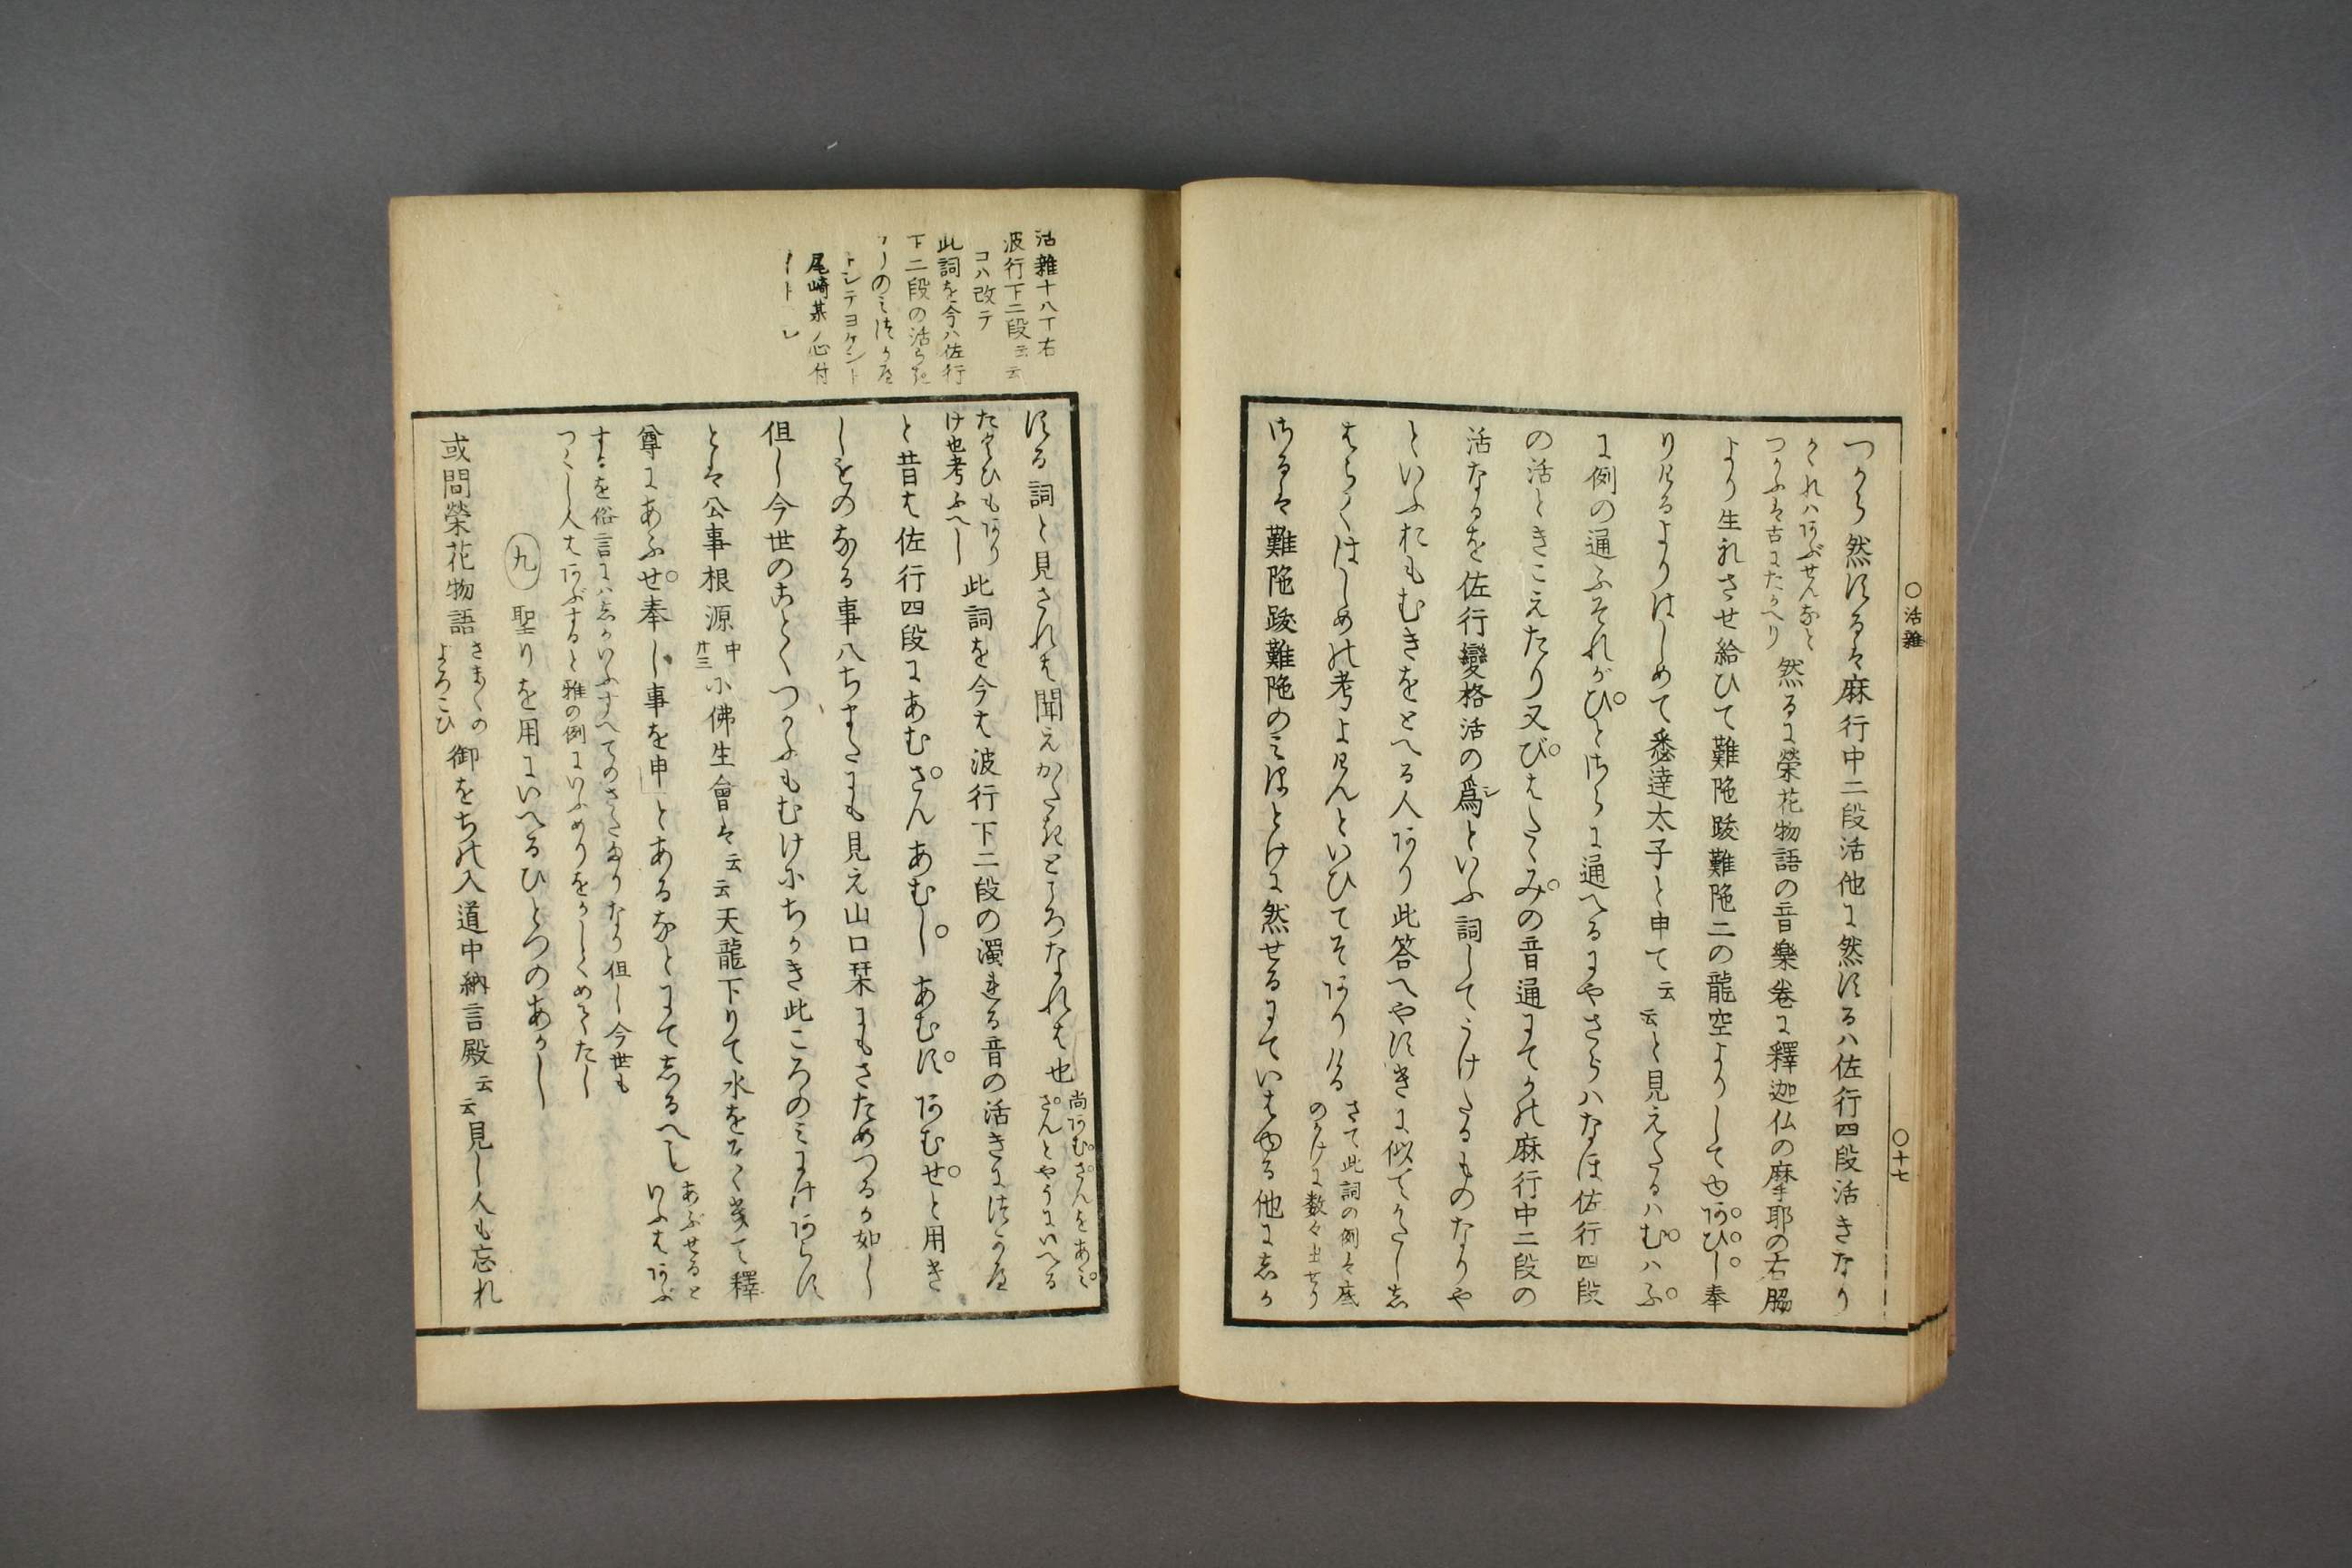 ○活雜
○十七
つから然するは麻行中二段活他に然するハ佐行四段活きなり
かゝれハあぶせんなと
つかふは古にたかへり
然るに榮花物語の音樂卷に釋迦仏の摩耶の右脇
より生れさせ給ひて難陁跋難陁二の龍空よりしてゆあびし奉
りけるよりはしめて悉達太子と申て云云と見えたるハむハふ
に例の通ふそれがびとさらに通へるにやさらハなほ佐行四段
の活ときこえたり又びはたゝみの音通にてかの麻行中二段の
活なるを佐行變格活の爲シといふ詞してうけたるものなりや
といふおもむきをとへる人あり此答へやすきに似てかたし志
はらくはしめの考よけんといひてそありける
さて此詞の例は底
のかけに数々出せり
さるは難陁跋難陁のみほとけに然せるにていはゆる他に志か
する詞と見されは聞えかたきところなれは也
尚あむさんをあみ
さんとやうにいへる
たくひもあり
け也考ふへし
此詞を今は波行下二段の濁れる音の活きにはつかへ
と昔は佐行四段にあむさんあむしあむすあむせと用き
しものなる事八ちまたにも見え山口栞にもさためつるか如し
但し今世のことくつかふもむけにちかき此ころのみにはあらす
とは公事根源
中
廿三
小佛生會は云云天龍下りて水をそゝきて釋
尊にあふせ奉し事を申とあるなとにて志るへし
あぶせると
いふはあぶ
するを俗言にハ志かいふすへてのさたまりなり但し今世も
つくし人はあぶすると雅の例にいふめりをかしくめてたし
九
聖りを用にいへるひとつのあかし
或問榮花物語
さま〱の
よろこひ
御をちの入道中納言殿云云見し人も忘れ
活雜十八丁右
波行下二段云云
コハ改テ
此詞を今ハ佐行
下二段の活らき
トシテヨケント
尾崎某ノ心付